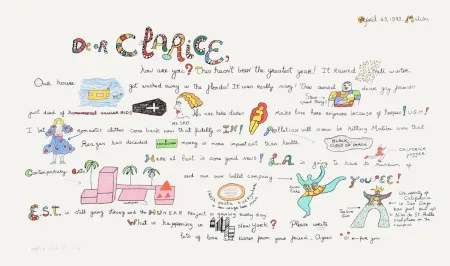 April 23, 1983, Malibu
Dear Clarice,
how are you? This hasn't been the greatest year! It rained all winter
Our house got washed away in the floods! It was really scary! Two dear gay friends
just died of AIDS ME SAD we here
make love here anymore because of herpes! UGH!
I bet romantic clothes come back now that fidelity is IN! Pollution will soon be killing Malibu now that
CLOUD OF SMOG
Reagan has decided money is more important than health
CALIFORNIA JOGGER
Here at last is some good news! L.A. is going to have its museum of
Contemporary Art and our own ballet company
YOU SEE!
University of California in San Diego has just put up Niki de St. Phalle sculpture on the campus
E.S.T. is still going strong and the HUNGER Project is growing every day
What is happening in New York? Please write
lots of love from your friend. Again for you